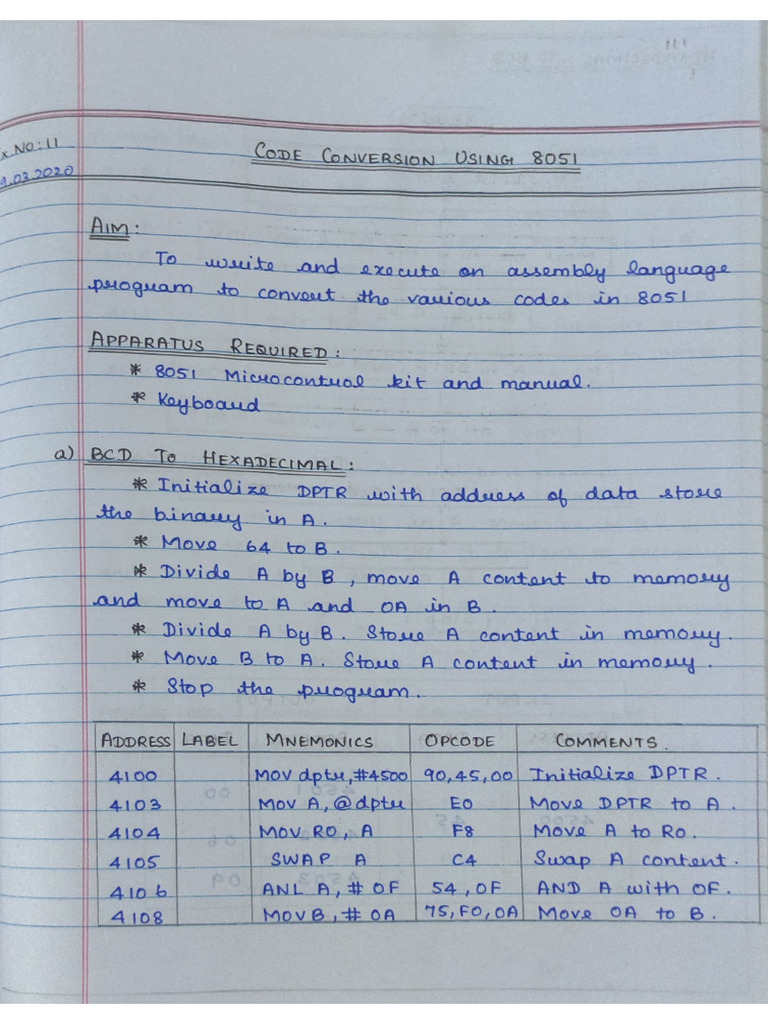 NO: 11
CODE CONVERSION USING 8051
.03.2020
AIM:
To write and execute an assembly language
program to convert the various codes in 8051
APPARATUS REQUIRED:
* 8051 Microcontrol kit and manual.
* Keyboard
a) BCD TO HEXADECIMAL:
* Initialize DPTR with address of data store
the binary in A.
* Move 64 to B.
* Divide A by B, move A content to memory
and move to A and 0A in B.
* Divide A by B. Store A content in memory.
* Move B to A. Store A content in memory.
* Stop the program.
ADDRESS LABEL MNEMONICS OPCODE COMMENTS.
4100 MOV dptr, #4500 90,45,00 Initialize DPTR.
4103 MOV A, @dptr E0 Move DPTR to A.
4104 MOV R0, A F8 Move A to R0.
4105 SWAP A C4 Swap A content.
4106 ANL A, # 0F 54, 0F AND A with 0F.
4108 MOV B, # 0A 75, F0, 0A Move 0A to B.